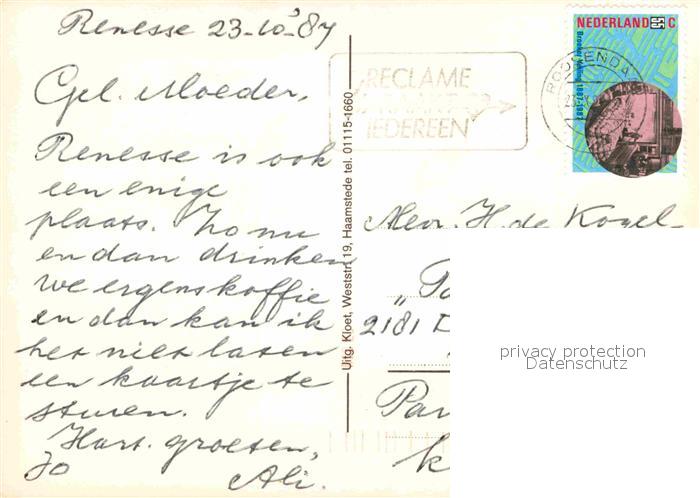 Renesse 23-10-'87
Gel. Moeder,
Renesse is ook
een enige
plaats. Zo nu
en dan drinken
we ergens koffie
en dan kan ik
het niet laten
een kaartje te
sturen.
Hart. groeten,
Jo Ali.
Uitg. Kloet, Weststr. 19, Haamstede tel. 01115-1660
RECLAME
IEDEREEN
ROOSENDAAL
NEDERLAND 55 C
Broeker Veiling 1887-1987
Mevr. H. de Kogel-
2181
privacy protection
Datenschutz